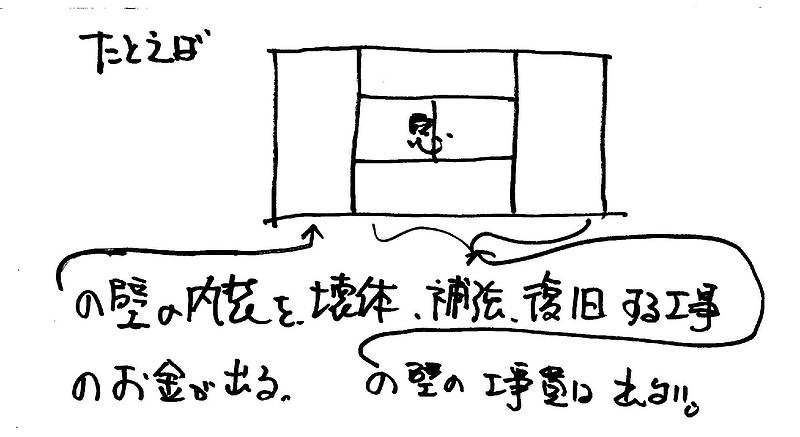 たとえば
窓
の壁の内装を壊体、補強、復旧する工事
のお金が出る。 の壁の工事費は出ない。